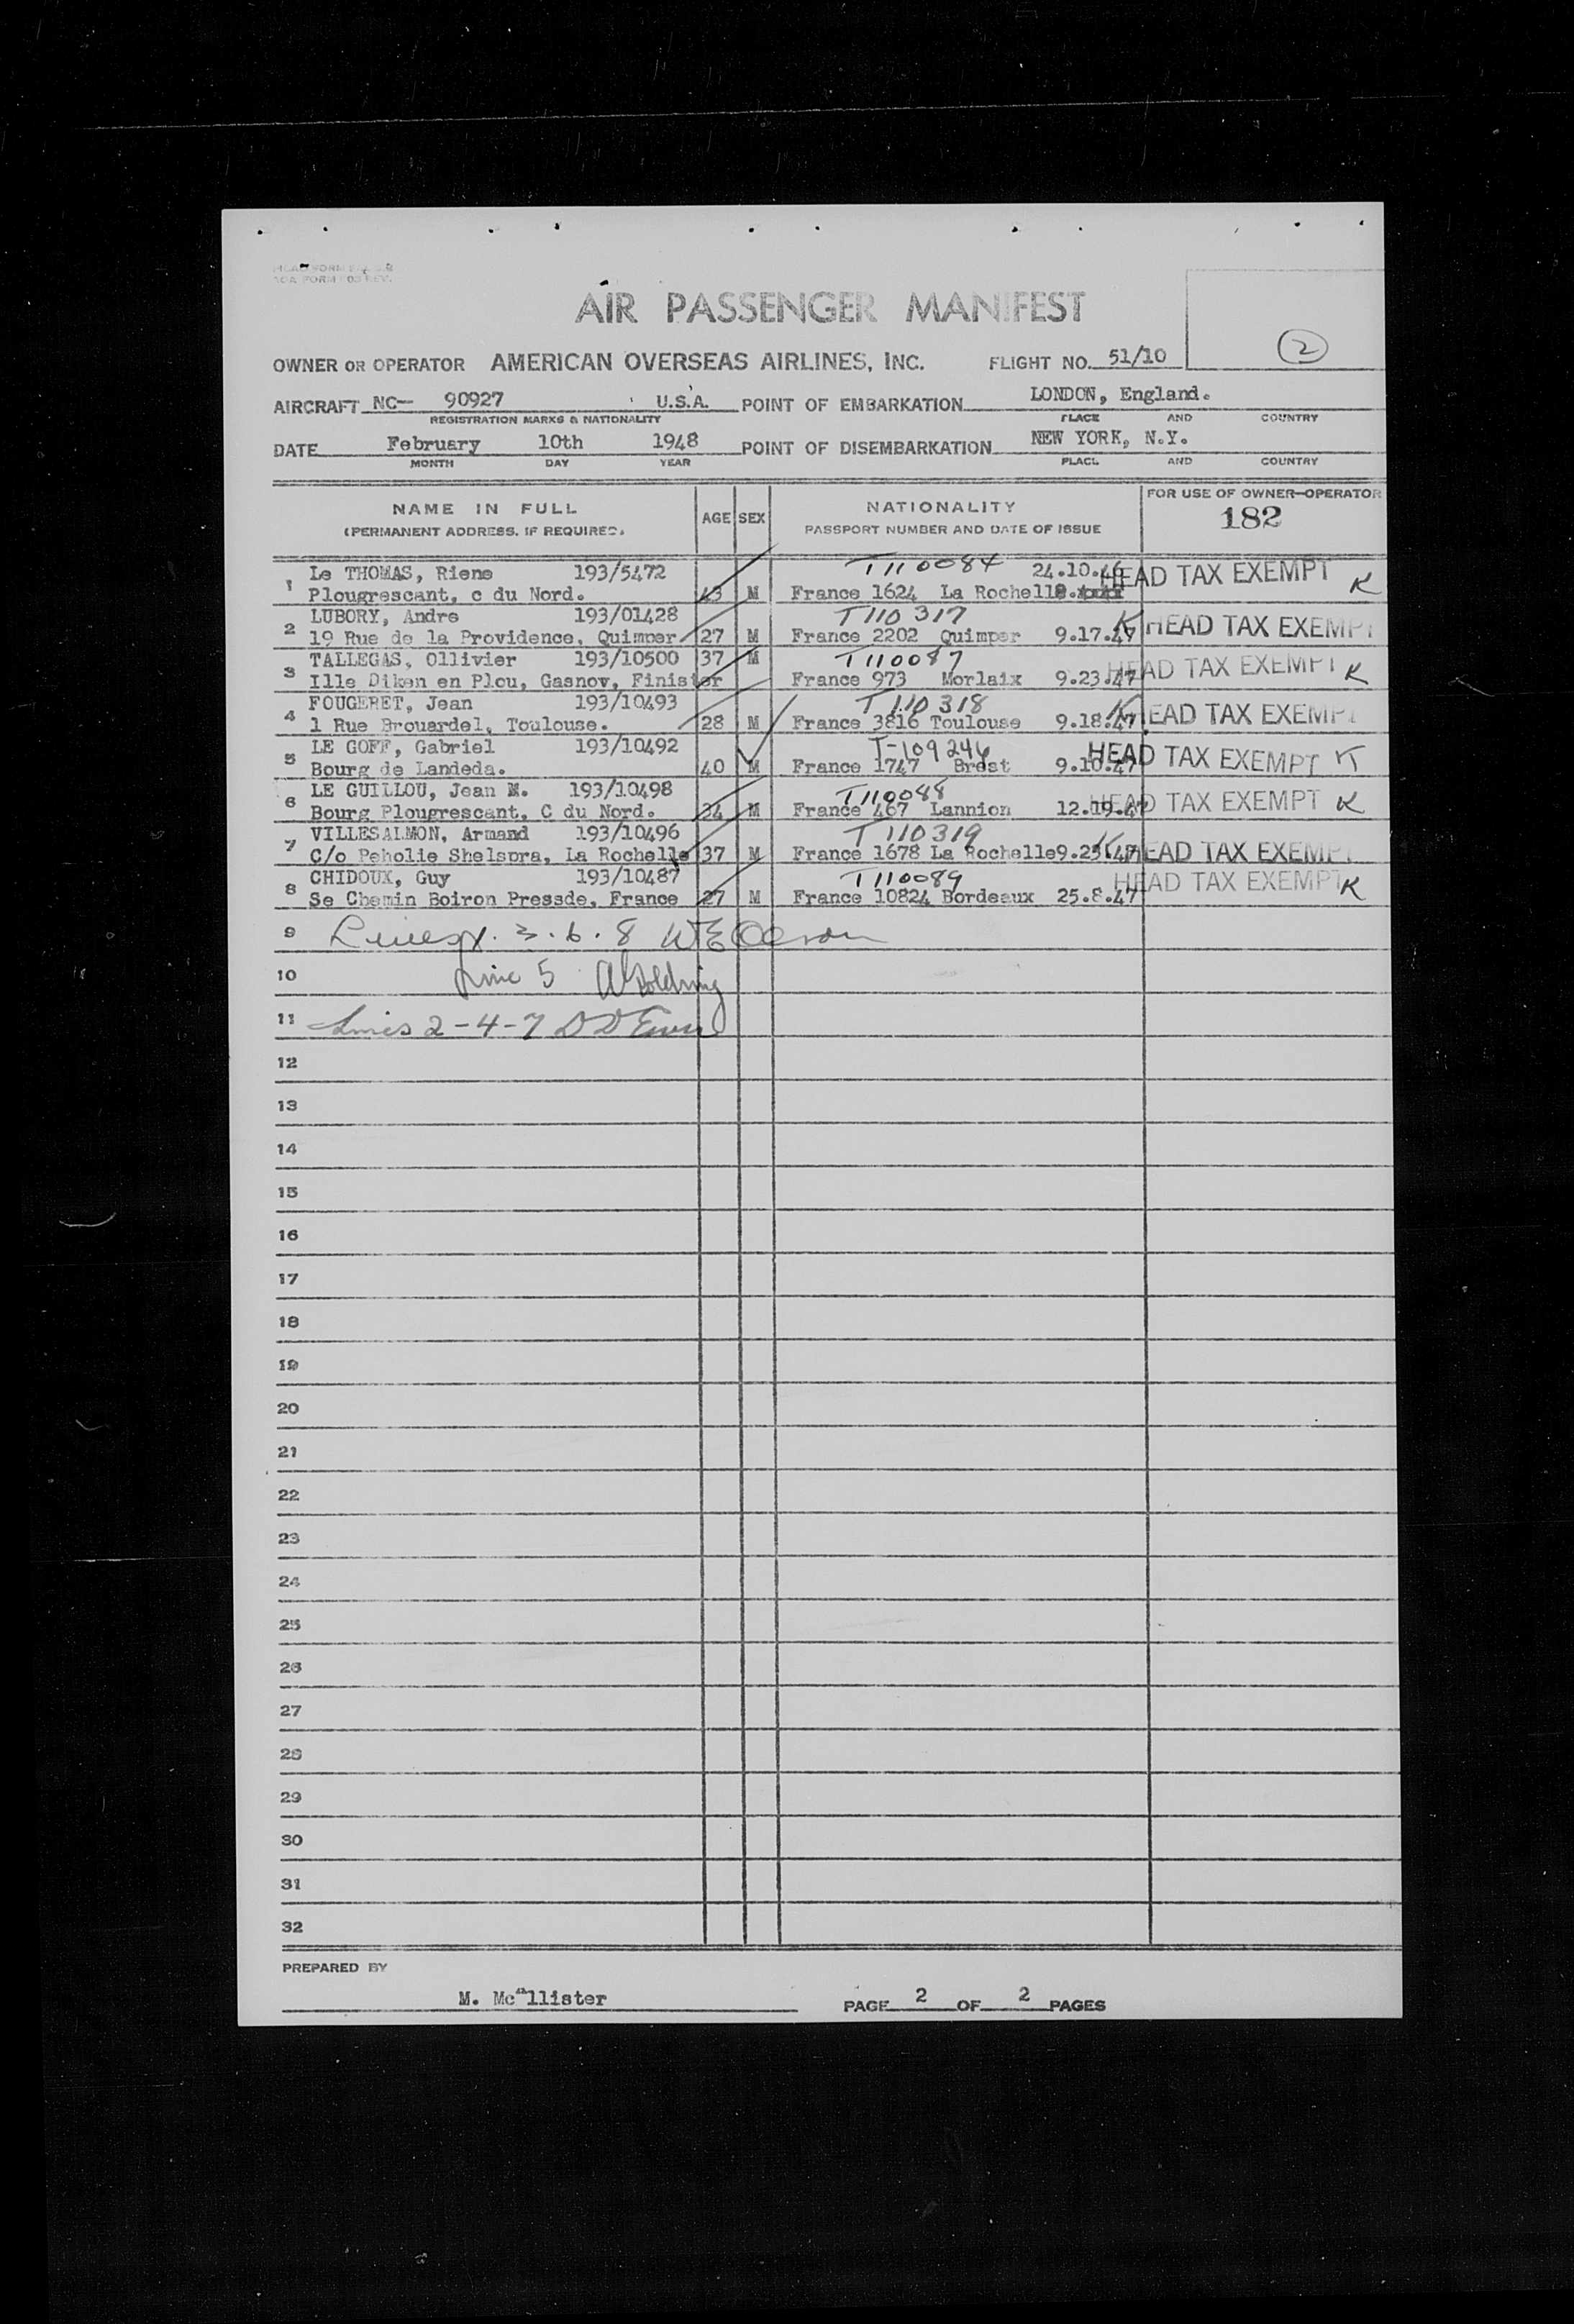 AIR PASSENGER MANIFEST
2
OWNER OR OPERATOR AMERICAN OVERSEAS AIRLINES, INC. FLIGHT NO. 51/10
AIRCRAFT NC- 90927 U.S.A. POINT OF EMBARKATION LONDON, England.
REGISTRATION MARKS & NATIONALITY PLACE AND COUNTRY
DATE February 10th 1948 POINT OF DISEMBARKATION NEW YORK, N.Y.
MONTH DAY YEAR PLACE AND COUNTRY
NAME IN FULL AGE SEX NATIONALITY FOR USE OF OWNER-OPERATOR
(PERMANENT ADDRESS, IF REQUIRED) PASSPORT NUMBER AND DATE OF ISSUE 182
1 Le THOMAS, Riene 193/5472 T110084 24.10.46 HEAD TAX EXEMPT K
Plougrescant, c du Nord. M France 1624 La Rochelle
2 LUBORY, Andre 193/01428 T110317 K HEAD TAX EXEMPT
19 Rue de la Providence, Quimper 27 M France 2202 Quimper 9.17.47
3 TALLEGAS, Ollivier 193/10500 37 M T110087 HEAD TAX EXEMPT K
Ille Diken en Plou, Gasnov, Finister France 973 Morlaix 9.23.47
4 FOUGERET, Jean 193/10493 T110318 K HEAD TAX EXEMPT
1 Rue Brouardel, Toulouse. 28 M France 3816 Toulouse 9.18.47
5 LE GOFF, Gabriel 193/10492 T-109246 HEAD TAX EXEMPT K
Bourg de Landeda. 40 M France 1747 Brest 9.10.47
6 LE GUILLOU, Jean M. 193/10498 T110088 HEAD TAX EXEMPT K
Bourg Plougrescant, C du Nord. 34 M France 467 Lannion 12.19.47
7 VILLESALMON, Armand 193/10496 T110319 K HEAD TAX EXEMPT
C/o Peholie Shelspra, La Rochelle 37 M France 1678 La Rochelle 9.25.47
8 CHIDOUX, Guy 193/10487 T110089 HEAD TAX EXEMPT K
Se Chemin Boiron Pressde, France 27 M France 10824 Bordeaux 25.8.47
9 Lines 1. 3. 6. 8
10 Line 5 Goldring
11 Lines 2-4-7
12
13
14
15
16
17
18
19
20
21
22
23
24
25
26
27
28
29
30
31
32
PREPARED BY
M. McAllister PAGE 2 OF 2 PAGES